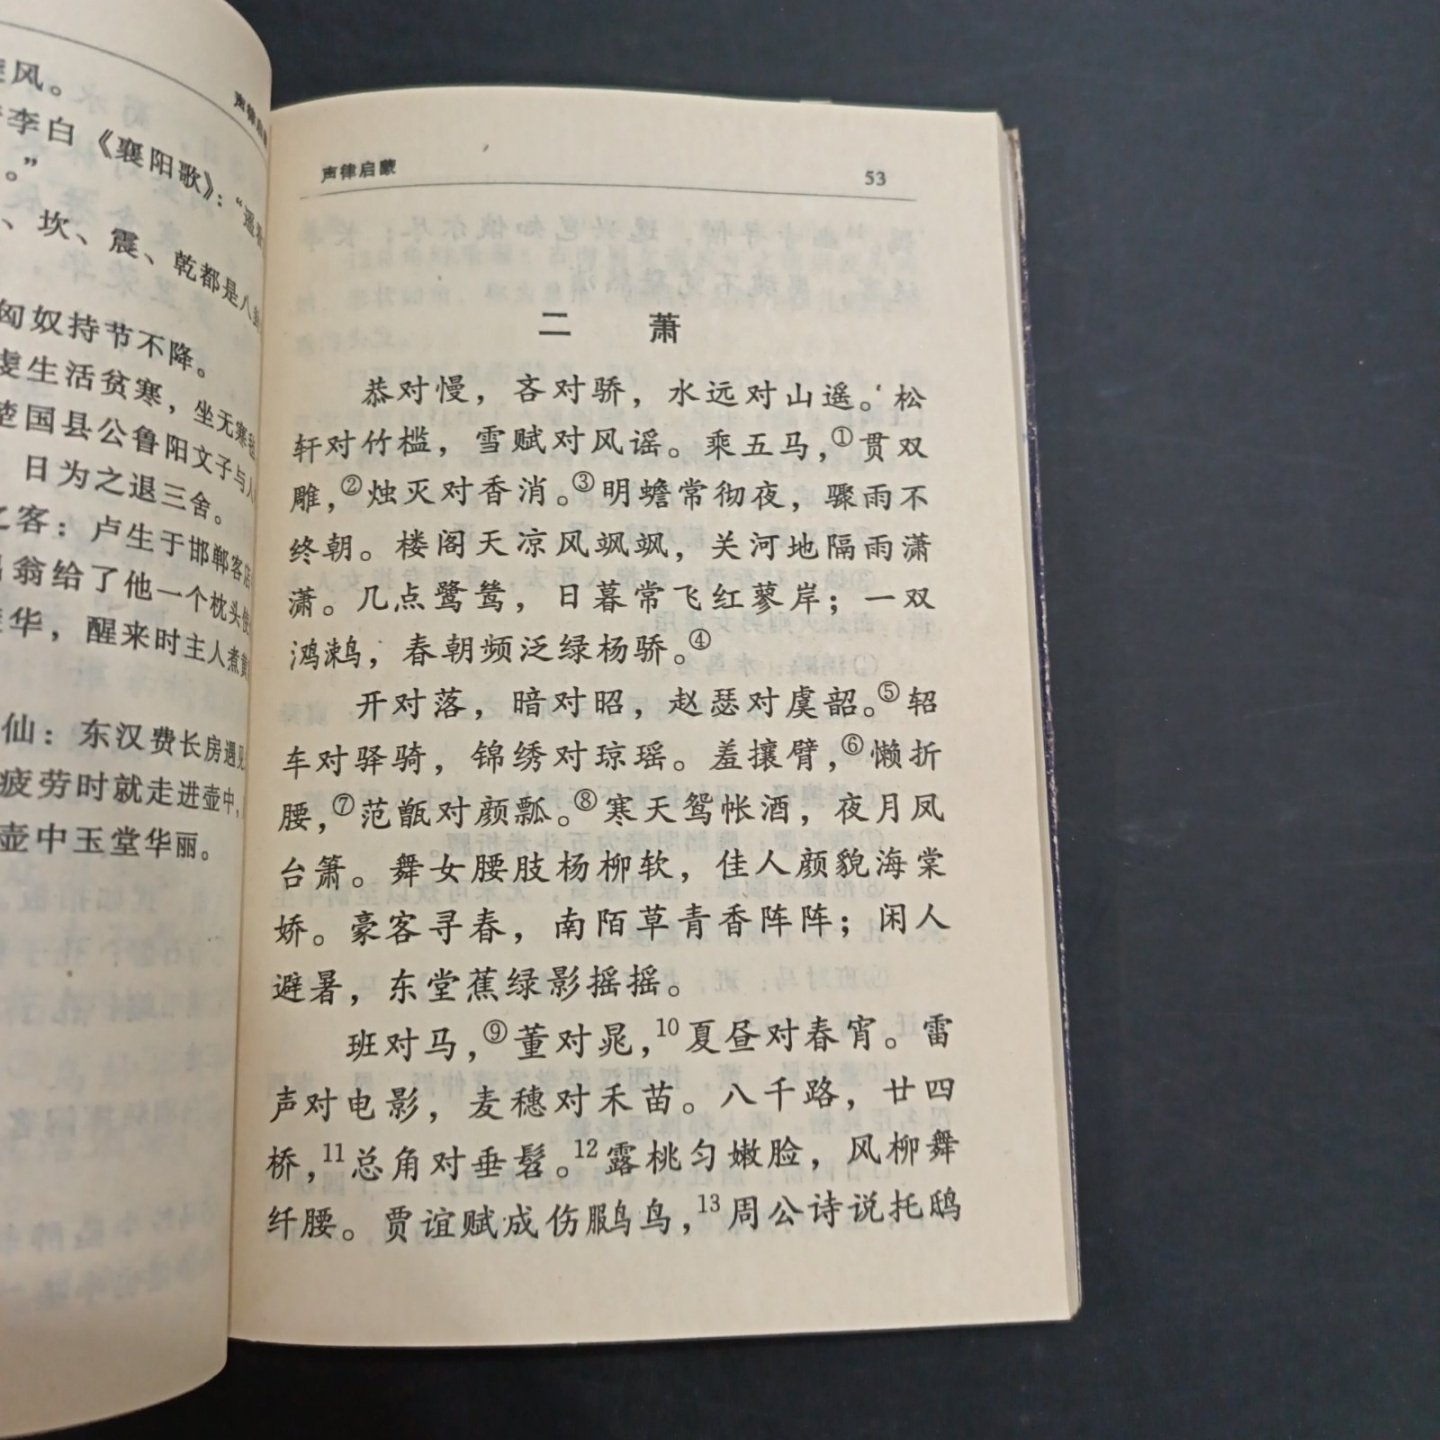 旋风。
李白《襄阳歌》：“遥看
。”
、坎、震、乾都是八卦
匈奴持节不降。
生活贫寒，坐无寒毡
楚国县公鲁阳文子与人
日为之退三舍。
之客：卢生于邯郸客店
翁给了他一个枕头使
华，醒来时主人煮黄
仙：东汉费长房遇见
疲劳时就走进壶中，
壶中玉堂华丽。
声律启蒙
声律启蒙 53
二 萧
恭对慢，吝对骄，水远对山遥。松
轩对竹槛，雪赋对风谣。乘五马，①贯双
雕，②烛灭对香消。③明蟾常彻夜，骤雨不
终朝。楼阁天凉风飒飒，关河地隔雨潇
潇。几点鹭鸶，日暮常飞红蓼岸；一双
鸿鶒，春朝频泛绿杨骄。④
开对落，暗对昭，赵瑟对虞韶。⑤轺
车对驿骑，锦绣对琼瑶。羞攘臂，⑥懒折
腰，⑦范甑对颜瓢。⑧寒天鸳帐酒，夜月凤
台箫。舞女腰肢杨柳软，佳人颜貌海棠
娇。豪客寻春，南陌草青香阵阵；闲人
避暑，东堂蕉绿影摇摇。
班对马，⑨董对晁，10夏昼对春宵。雷
声对电影，麦穗对禾苗。八千路，廿四
桥，11总角对垂髫。12露桃匀嫩脸，风柳舞
纤腰。贾谊赋成伤鵩鸟，13周公诗说托鸱